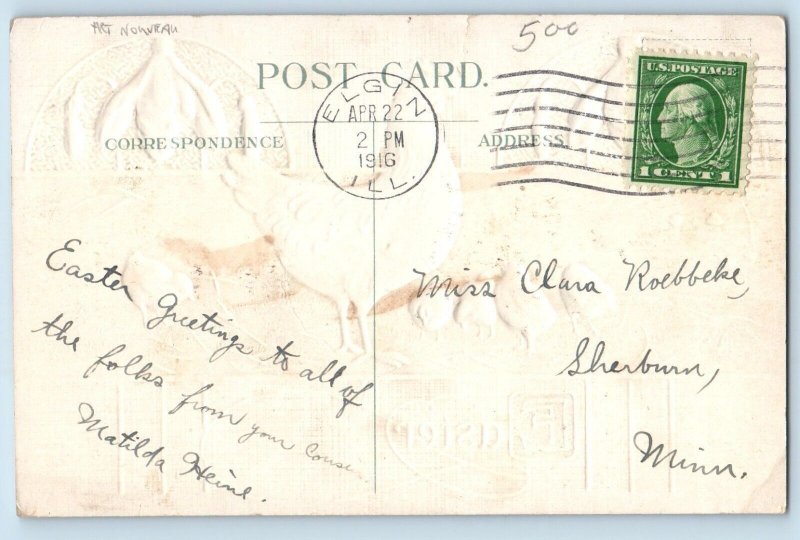 ART NOUVEAU
500
POST CARD.
U.S. POSTAGE
1 CENT 1
ELGIN
APR 22
2 PM
1916
ILL.
CORRESPONDENCE
ADDRESS
Easter Greetings to all of
the folks from your cousin
Matilda Heine.
Miss Clara Roebbeke,
Sherburn,
Minn.
Easter